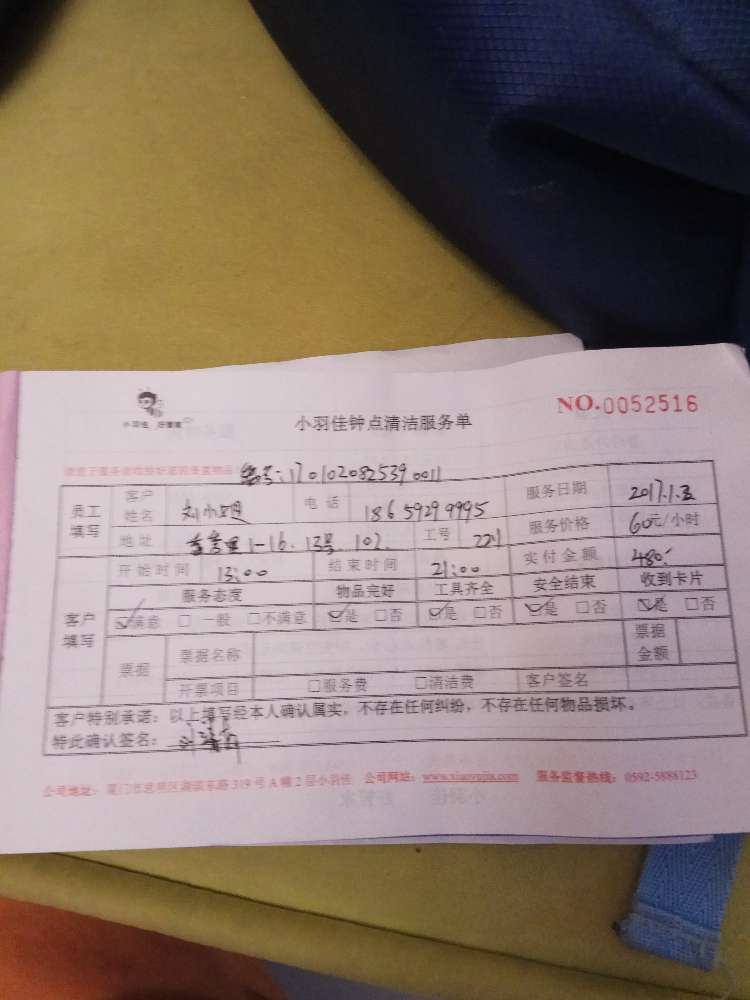 小羽佳 好管家
小羽佳钟点清洁服务单
NO.0052516
编号:1701020825390011
员工填写 客户姓名 电话 18659299995 服务日期 2017.1.5
地址 1-16. 13号 102. 工号 221 服务价格 60元/小时
客户填写 开始时间 13:00 结束时间 21:00 实付金额 480.
服务态度 物品完好 工具齐全 安全结束 收到卡片
满意 一般 不满意 是 否 是 否 是 否 是 否
票据 票据名称 票据金额
开票项目 服务费 清洁费 客户签名
客户特别承诺:以上填写经本人确认属实,不存在任何纠纷,不存在任何物品损坏。
特此确认签名:
公司地址:厦门市思明区湖滨东路319号A幢2层小羽佳 公司网站:www.xiaoyujia.com 服务监督热线:0592-5888123